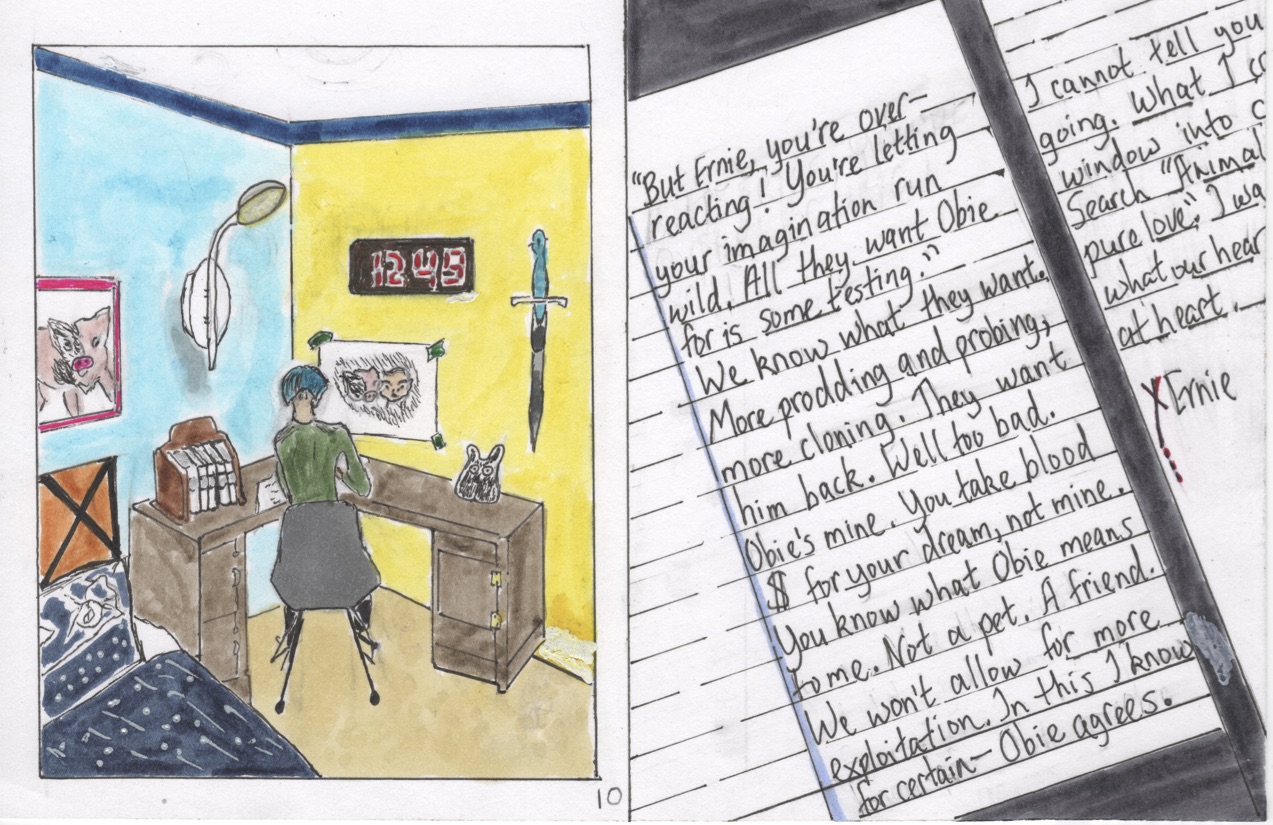 12 49
10
"But Ernie, you're over-
reacting! You're letting
your imagination run
wild. All they want Obie
for is some testing."
We know what they want.
More prodding and probing,
more cloning. They want
him back. Well too bad.
Obie's mine. You take blood
$ for your dream, not mine.
You know what Obie means
to me. Not a pet. A friend.
We won't allow for more
exploitation. In this I know
for certain- Obie agrees.
I cannot tell you
going. What I
window into
Search "Animal
pure love". I
what our
at heart.
X Ernie